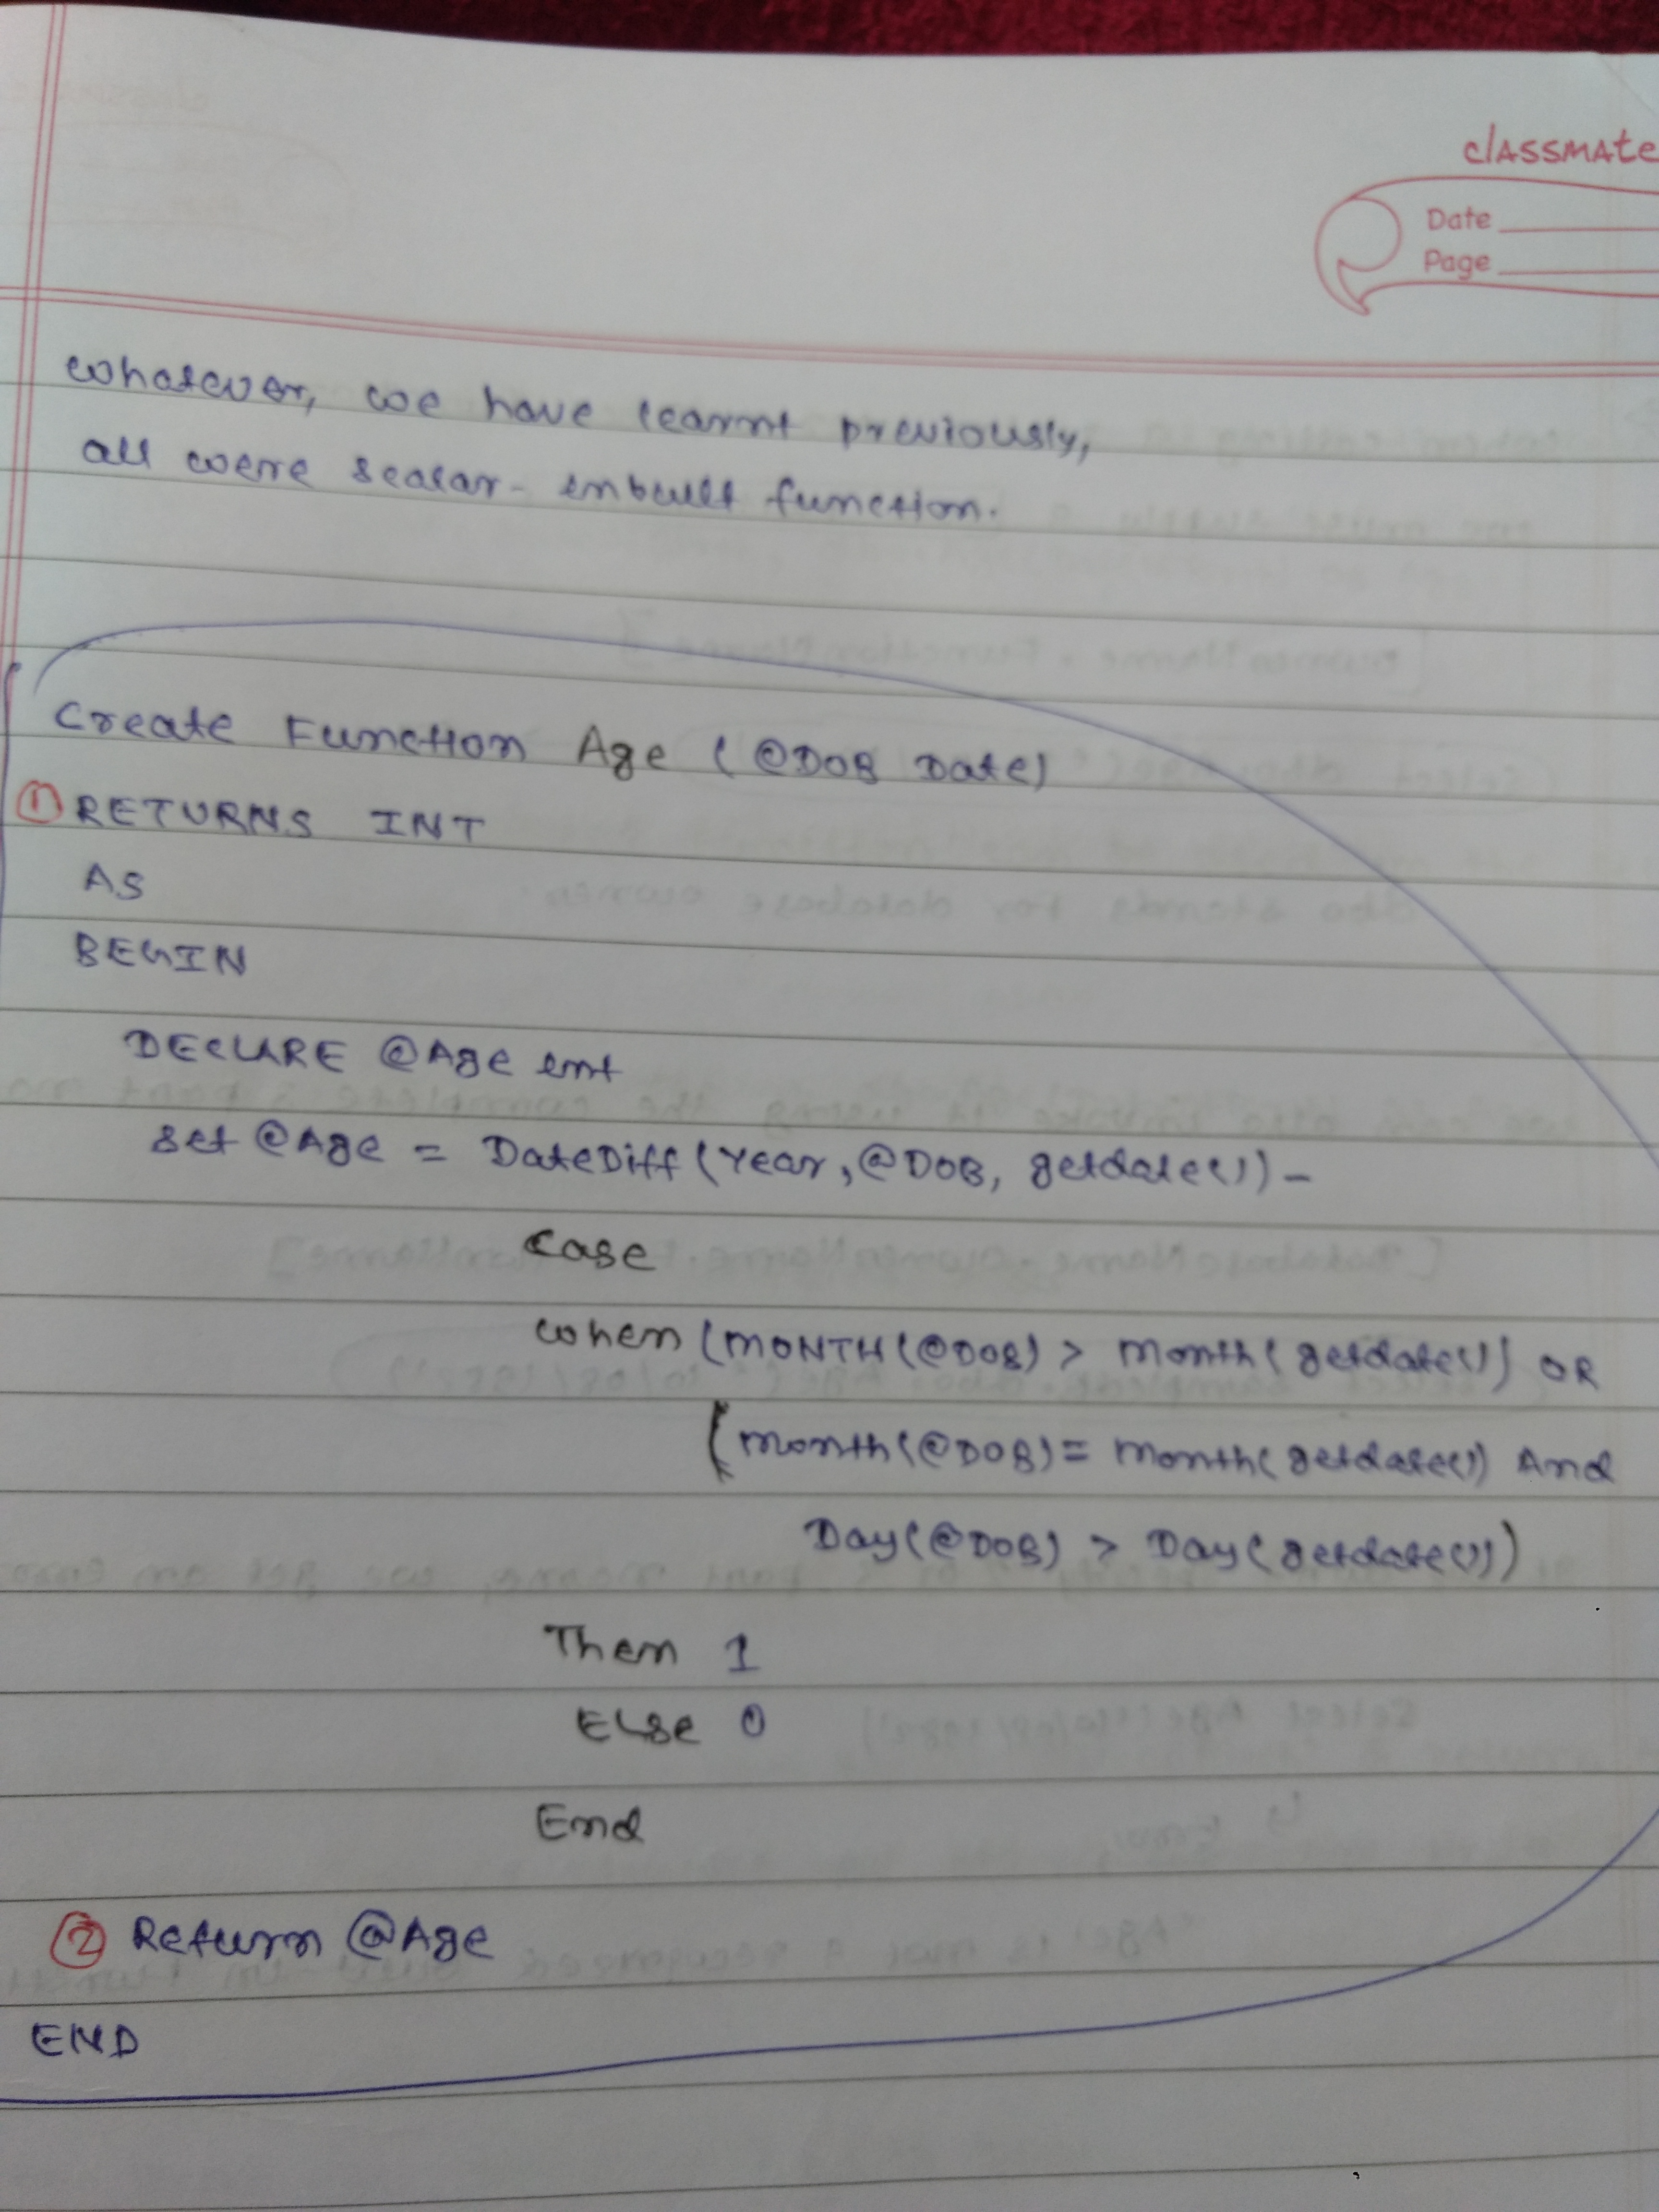 classmate
Date
Page
Whatever, we have learnt previously,
all were scalar-inbuilt function.
Create Function Age (@DOB Date)
① RETURNS INT
AS
BEGIN
DECLARE @Age int
Set @Age = DateDiff(Year,@DOB, getdate()) -
Case
When (MONTH(@DOB) > Month(getdate()) OR
(Month(@DOB) = Month(getdate()) And
Day(@DOB) > Day(getdate()))
Then 1
Else 0
End
② Return @Age
END